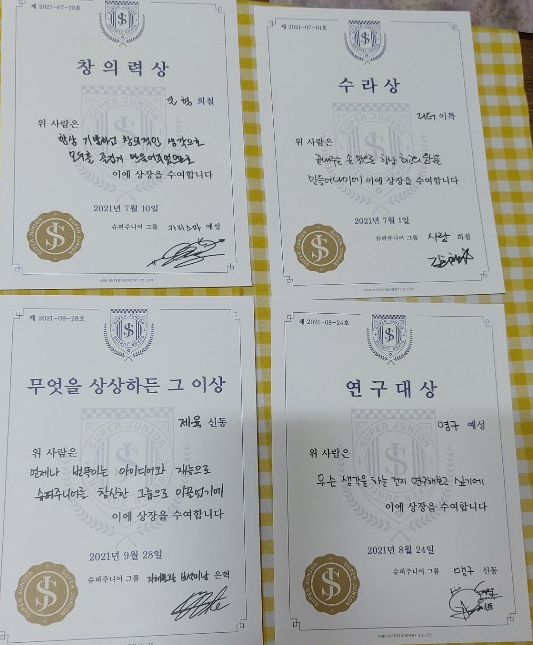 제 2021-07-10호
SUPER JUNIOR
창의력상
희철
위 사람은
항상 기발하고 창의적인 생각으로
모두를 즐겁게 만들어주었으므로
이에 상장을 수여합니다
2021년 7월 10일
슈퍼주니어 그룹 카리스마 예성
SUPER JUNIOR
SJ
제 2021-07-01호
SUPER JUNIOR
수라상
리더 이특
위 사람은
만들어내기에 이에 상장을 수여합니다
2021년 7월 1일
슈퍼주니어 그룹 사랑 희철
SJ
제 2021-09-28호
SUPER JUNIOR
무엇을 상상하든 그 이상
신동
위 사람은
언제나 번뜩이는 아이디어와 재능으로
슈퍼주니어를 참신한 그룹으로 이끌었기에
이에 상장을 수여합니다
2021년 9월 28일
슈퍼주니어 그룹 은혁
SJ
제 2021-08-24호
SUPER JUNIOR
연구대상
예성
위 사람은
무슨 생각을 하는 건지 연구해보고 싶기에
이에 상장을 수여합니다
2021년 8월 24일
슈퍼주니어 그룹 신동
SJ